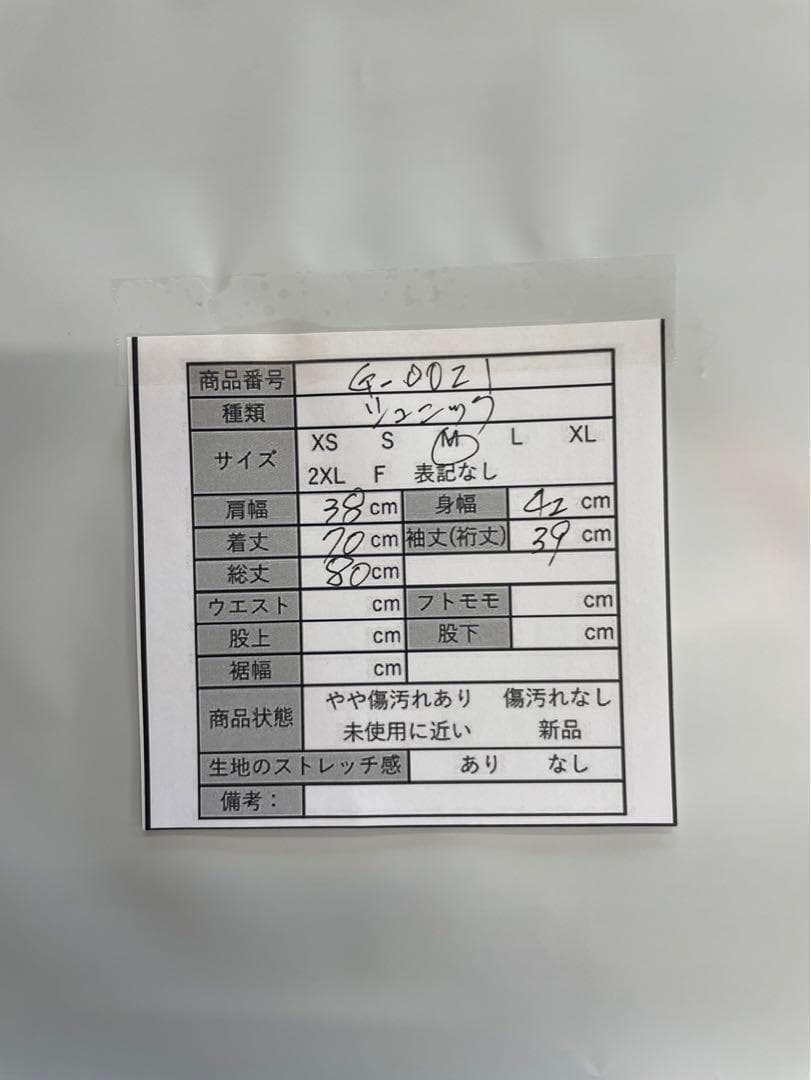 商品番号 G-0021
種類 ツュニック
サイズ XS S M L XL
2XL F 表記なし
肩幅 38 cm 身幅 42 cm
着丈 70 cm 袖丈(裄丈) 39 cm
総丈 80 cm
ウエスト cm フトモモ cm
股上 cm 股下 cm
裾幅 cm
商品状態 やや傷汚れあり 傷汚れなし
未使用に近い 新品
生地のストレッチ感 あり なし
備考：